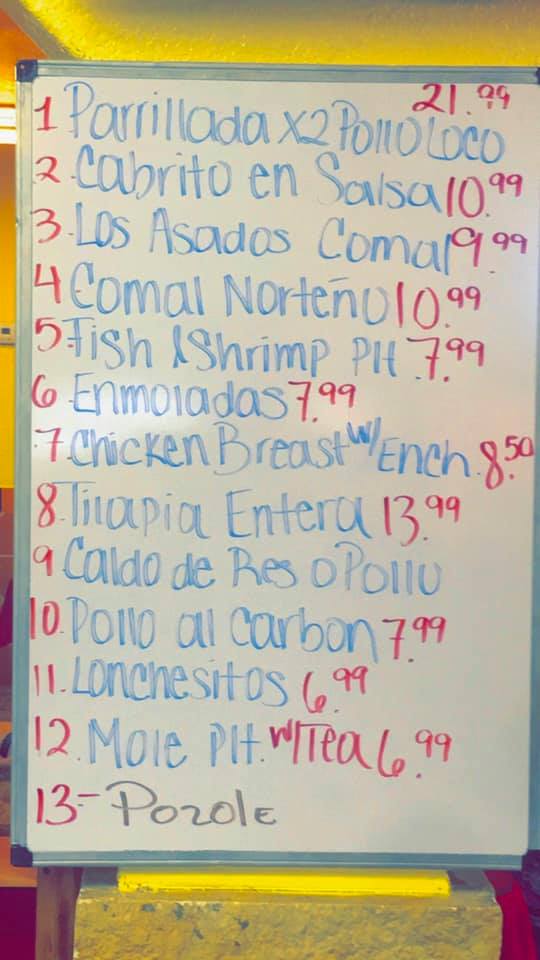 21.99
1 Parrillada x2 Pollo Loco
2. Cabrito en Salsa 10.99
3. Los Asados Comal 9.99
4 Comal Norteño 10.99
5 Fish & Shrimp Plt. 7.99
6 Enmoladas 7.99
.7 Chicken Breast w/ Ench. 8.50
8. Tilapia Entera 13.99
9 Caldo de Res o Pollo
10. Pollo al Carbon 7.99
11. Lonchesitos 6.99
12. Mole Plt. w/Tea 6.99
13- Pozole